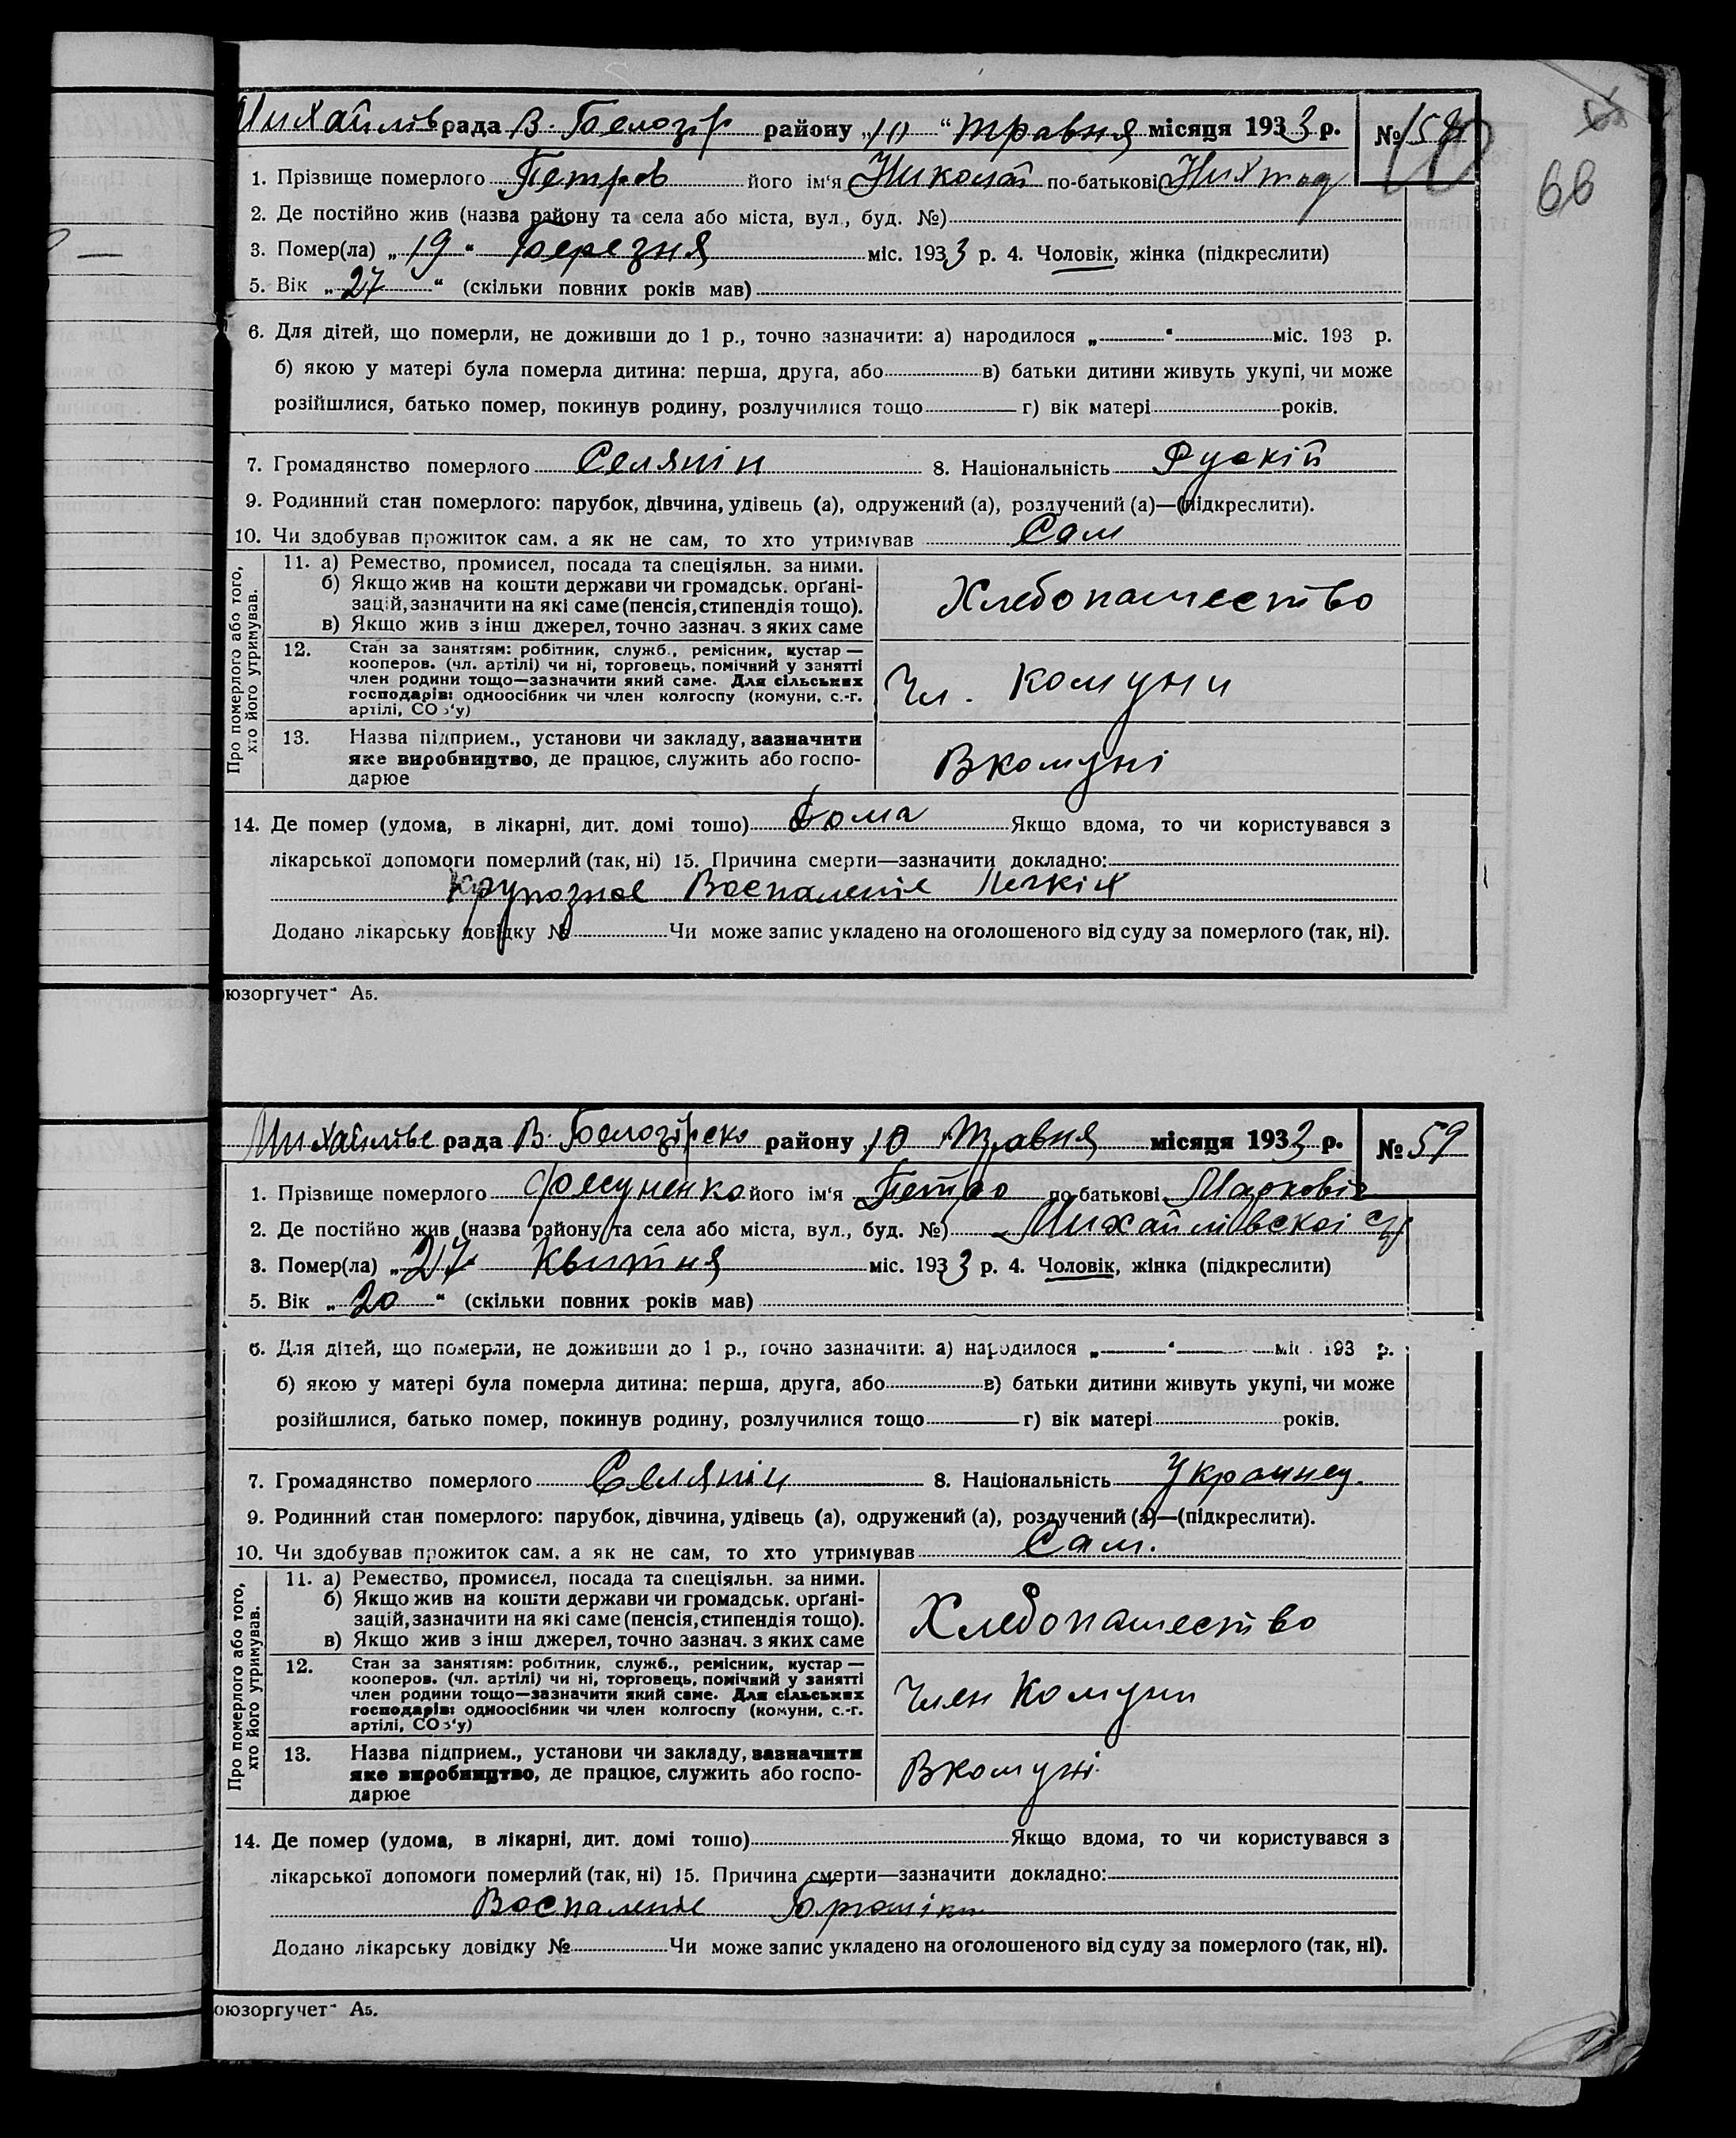 Михайлів рада В. Белозір району „10“ травня місяця 1933 р. №
66
1. Прізвище померлого Петров його ім'я Николай по-батькові
2. Де постійно жив (назва району та села або міста, вул., буд. №)
3. Помер(ла) „19“ Березня міс. 1933 р. 4. Чоловік, жінка (підкреслити)
5. Вік „27“ (скільки повних років мав)
6. Для дітей, що померли, не доживши до 1 р., точно зазначити: а) народилося „ “ міс. 193 р.
б) якою у матері була померла дитина: перша, друга, або в) батьки дитини живуть укупі, чи може
розійшлися, батько помер, покинув родину, розлучилися тощо г) вік матері років.
7. Громадянство померлого Селянін 8. Національність Рускій
9. Родинний стан померлого: парубок, дівчина, удівець (а), одружений (а), розлучений (а)—(підкреслити).
10. Чи здобував прожиток сам, а як не сам, то хто утримував Сам
Про померлого або того,
хто його утримував.
11. а) Ремество, промисел, посада та спеціяльн. за ними.
б) Якщо жив на кошти держави чи громадськ. орґані-
зацій, зазначити на які саме (пенсія, стипендія тощо).
в) Якщо жив з інш джерел, точно зазнач. з яких саме
Хлебопашество
12. Стан за заняттям: робітник, служб., ремісник, кустар —
кооперов. (чл. артілі) чи ні, торговець, помічний у занятті
член родини тощо—зазначити який саме. Для сільських
господарів: одноосібник чи член колгоспу (комуни, с.-г.
артілі, СОЗ'у)
Чл. Комуни
13. Назва підприєм., установи чи закладу, зазначити
яке виробництво, де працює, служить або госпо-
дарює
В комуні
14. Де помер (удома, в лікарні, дит. домі тощо) дома Якщо вдома, то чи користувався з
лікарської допомоги померлий (так, ні) 15. Причина смерти—зазначити докладно:
Крупозное Воспаленіе Легкіх
Додано лікарську довідку № Чи може запис укладено на оголошеного від суду за померлого (так, ні).
юзоргучет“ А5.
Михайлівс рада В. Белозірско району 10 Травня місяця 1933 р. № 59
1. Прізвище померлого його ім'я Петро по-батькові Маркович
2. Де постійно жив (назва району та села або міста, вул., буд. №) Михайлівскоі
3. Помер(ла) „27 Квитня міс. 1933 р. 4. Чоловік, жінка (підкреслити)
5. Вік „20“ (скільки повних років мав)
6. Для дітей, що померли, не доживши до 1 р., точно зазначити: а) народилося „ “ міс. 193 р.
б) якою у матері була померла дитина: перша, друга, або в) батьки дитини живуть укупі, чи може
розійшлися, батько помер, покинув родину, розлучилися тощо г) вік матері років.
7. Громадянство померлого Селянін 8. Національність Украинец
9. Родинний стан померлого: парубок, дівчина, удівець (а), одружений (а), розлучений (а)—(підкреслити).
10. Чи здобував прожиток сам, а як не сам, то хто утримував Сам.
Про померлого або того,
хто його утримував.
11. а) Ремество, промисел, посада та спеціяльн. за ними.
б) Якщо жив на кошти держави чи громадськ. орґані-
зацій, зазначити на які саме (пенсія, стипендія тощо).
в) Якщо жив з інш джерел, точно зазнач. з яких саме
Хлебопашество
12. Стан за заняттям: робітник, служб., ремісник, кустар —
кооперов. (чл. артілі) чи ні, торговець, помічний у занятті
член родини тощо—зазначити який саме. Для сільських
господарів: одноосібник чи член колгоспу (комуни, с.-г.
артілі, СОЗ'у)
Член Комуни
13. Назва підприєм., установи чи закладу, зазначити
яке виробництво, де працює, служить або госпо-
дарює
В комуні
14. Де помер (удома, в лікарні, дит. домі тощо) Якщо вдома, то чи користувався з
лікарської допомоги померлий (так, ні) 15. Причина смерти—зазначити докладно:
Воспаленіе
Додано лікарську довідку № Чи може запис укладено на оголошеного від суду за померлого (так, ні).
юзоргучет“ А5.